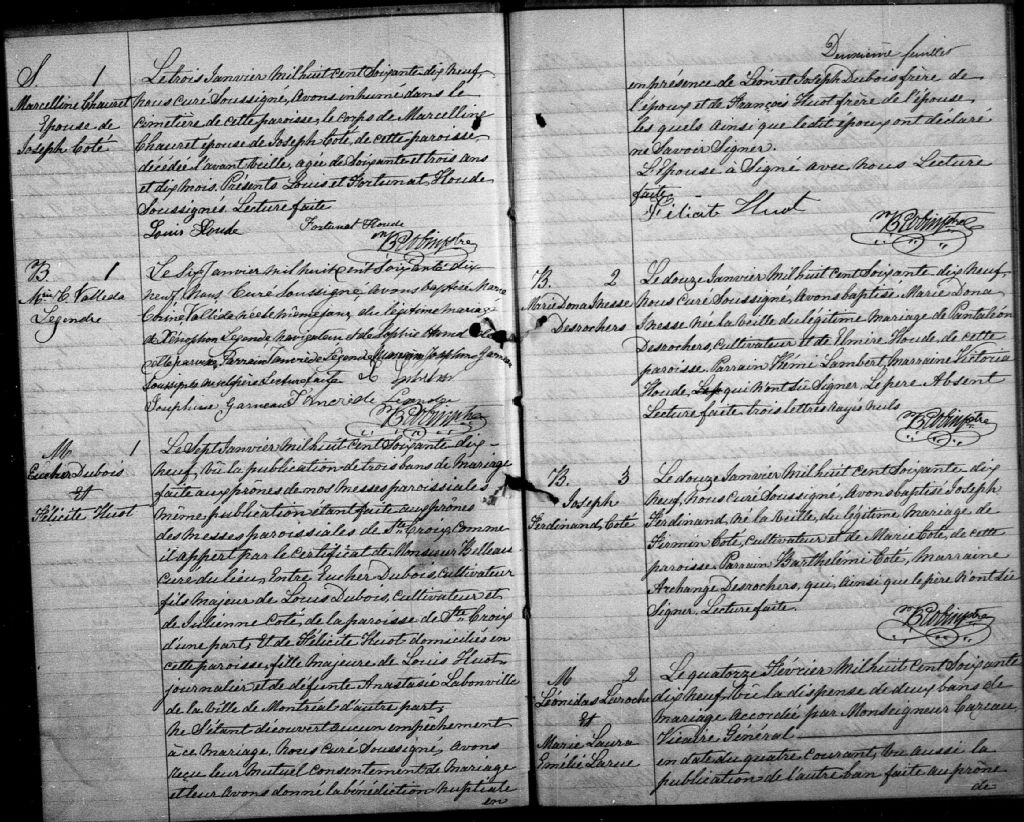 S 1
Marcelline Chauret
Epouse de
Joseph Coté
Le trois Janvier Mil huit cent Soixante dix Neuf,
Nous curé Soussigné, Avons inhumé dans le
cemetière de cette paroisse, le corps de Marcelline
Chauret épouse de Joseph Coté, de cette paroisse,
décédée l'avant Veille, agée de Soixante et trois ans
et dix Mois. Présents Louis et Fortunat Houde
Soussignés. Lecture faite
Louis Houde Fortunat Houde
B 1
Valleda
Legendre
Le Six Janvier mil huit cent Soixante dix
Neuf, Nous, Curé Soussigné, avons baptisé Marie
du légitime mariage
de Xénophon Legendre navigateur et de Sophie
Parrain Legendre Josephine Garneau
Soussignés Lecture faite
Josephine Garneau
M 1
Eucher Dubois
Et
Félicité Huot
Le Sept Janvier Mil huit cent Soixante dix-
Neuf, Vû la publication de trois bans de Mariage
faite aux prônes de nos Messes paroissiales
Même publication étant faite aux prônes
des Messes paroissiales de Ste Croix, Comme
il appert par le certificat de Monsieur Belleau
curé du lieu, Entre Eucher Dubois, Cultivateur
fils Majeur de Louis Dubois, Cultivateur et
de Julienne Coté, de la paroisse de Ste Croix
d'une part; Et de Félicité Huot domiciliée en
cette paroisse, fille Majeure de Louis Huot
journalier et de défunte Anastasie Labonville
de la Ville de Montréal d'autre part;
Ne S'étant découvert aucun empêchement
à ce Mariage, Nous curé Soussigné, Avons
reçu leur Mutuel consentement de Mariage
et leur Avons donné la bénédiction Nuptiale
en
Deuxième feuillet
en présence de Léon et Joseph Dubois frère de
l'époux et de François Huot frère de l'épouse
les quels ainsi que le dit époux ont déclaré
ne Savoir Signer.
L'Epouse à Signé avec nous Lecture
faite
Félicité Huot
B. 2
Marie Dona Inesse
Desrochers
Le douze Janvier Mil huit cent Soixante dix Neuf,
Nous Curé Soussigné, Avons baptisé Marie Dona
Inesse Née la Veille du légitime Mariage de Pantaléon
Desrochers, Cultivateur et de Elmire Houde, de cette
paroisse. Parrain Rémi Lambert, Marraine Victoria
Houde, qui N'ont Sû Signer. Le pere Absent
Lecture faite trois lettres rayés Nuls
B. 3
Joseph
Ferdinand Coté
Le douze Janvier Mil huit cent Soixante dix
Neuf, Nous Curé Soussigné, Avons baptisé Joseph
Ferdinand, Né la Veille, du légitime Mariage de
Firmin Coté, Cultivateur et de Marie Coté, de cette
paroisse. Parrain Barthélémi Coté, Marraine
Archange Desrochers, qui, ainsi que le père N'ont Sû
Signer. Lecture faite.
M 2
Léonidas Laroche
Et
Marie Laura
Emélie Larue
Le quatorze Février Mil huit cent Soixante
dix Neuf, Vû la dispense de deux bans de
Mariage accordée par Monseigneur Cazeau
Vicaire Général
en date du quatre courant, Vu aussi la
publication de l'autre ban faite au prône
de